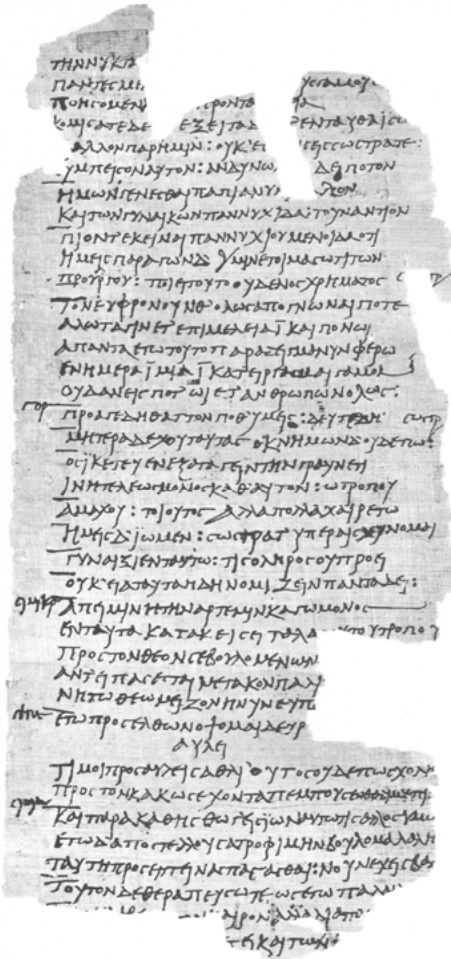 ΤΗΝΝΥΚΤΑ
ΠΑΝΤΕΣΜΕ ΥΣΓΑΜΟΥ
ΠΟΗΣΟΜΕΝ ΕΡΟΝΤΑ
ΚΟΜΙΣΑΤΕΔΕ ΕΞΕΙΠΑΔ ΕΝΤΑΥΘΑΙΣΩ
ΑΛΛΟΝΠΑΡΗΜΙΝ: ΟΥΚΕ ΣΩΣΤΡΑΤΕ:
ΥΜΠΕΙΣΟΝΑΥΤΟΝ: ΑΝΔΥΝΩ ΔΕΙΠΟΤΟΝ
ΗΜΩΝΓΕΝΕΣΘΑΙΠΑΠΙΑΝΥΝ ΛΟΝ
ΚΑΙΤΩΝΓΥΝΑΙΚΩΝΠΑΝΝΥΧΙΔΑ:ΤΟΥΝΑΝΤΙΟΝ
ΠΙΟΝΤΕΚΕΙΝΑΙΠΑΝΝΥΧΙΟΥΜΕΝΟΙΔΑΟΤΙ
ΗΜΕΙΣΠΑΡΑΓΩΝΔΥΜΙΝΕΤΟΙΜΑΣΩΤΙΤΩΝ
ΠΡΟΥΡΓΟΥ: ΠΟΙΕΙΤΟΥΤΟΥΔΕΝΟΣΧΡΗΜΑΤΟΣ ΣΩΣΤΡ
ΤΟΝΕΥΦΡΟΝΟΥΝΘΟΛΩΣΑΠΟΓΝΩΝΑΙΠΟΤΕ
ΑΛΩΤΑΓΙΝΕΤΕΠΙΜΕΛΕΙΑΙΚΑΙΠΟΝΩΙ
ΑΠΑΝΤΑΕΓΩΤΟΥΤΟΥΠΑΡΑΔΕΙΓΜΑΝΥΝΦΕΡΩ
ΕΝΗΜΕΡΑΙΜΙΑΙΚΑΤΕΙΡΓΑΣΜΑΙΓΑΜΟΝ
ΟΥΔΑΝΕΙΣΠΟΤΩΙΕΤΑΝΘΡΩΠΩΝΟΛΩΣ:
ΓΟΡ ΠΡΟΑΓΕΔΗΘΑΤΤΟΝΠΟΘΥΜΕΙΣ:ΔΕΥΤΕΔΗ ΣΩΣΤΡ
ΜΗΤΕΡΑΔΕΧΟΥΤΟΥΤΑΣΟΚΝΗΜΩΝΔΟΥΔΕΠΩ:
ΟΣΙΚΕΤΕΥΕΝΕΞΑΓΑΓΕΙΝΤΗΝΓΡΑΥΝΕΤΙ
ΙΝΗΤΕΛΕΩΣΜΟΝΟΣΚΑΘΑΥΤΟΝ:ΩΤΡΟΠΟΥ
ΑΜΑΧΟΥ:ΤΟΙΟΥΤΟΣΑΛΛΑΠΟΛΛΑΧΑΙΡΕΤΩ
ΗΜΕΙΣΔΙΩΜΕΝ:ΣΩΣΤΡΑΤΥΠΕΡΑΙΣΧΥΝΟΜΑΙ
ΓΥΝΑΙΞΙΕΝΤΑΥΤΩ:ΤΙΣΟΛΗΡΟΣΟΥΠΡΟΕΙ
ΟΥΚΕΙΑΤΑΥΤΑΗΔΗΝΟΜΙΖΕΙΝΠΑΝΤΑΔΕΙ:
ΑΠΕΙΜΙΝΗΤΗΝΑΡΤΕΜΙΝΚΑΓΩΜΟΝΟΣ
ΕΝΤΑΥΤΑΚΑΤΑΚΕΙΣΕΙΤΑΛΑ ΥΤΟΥΤΡΟΠΟΥ
ΠΡΟΣΤΟΝΘΕΟΝΣΕΒΟΥΛΟΜΕΝΩΝ
ΑΝΤΕΙΠΑΣΕΣΤΑΙΜΕΤΑΚΟΝΠΑΛΙ
ΝΗΤΩΘΕΩΜΕΙΖΟΝΗΝΥΝΕΥΠ
ΕΓΩΠΡΟΣΕΛΘΩΝΟΨΟΜΑΙΔΕΥΡ
ΑΥΛΕΙ
ΤΙΜΟΙΠΡΟΣΑΥΛΕΙΣΑΘΛΙΟΥΤΟΣΟΥΔΕΠΩΣΧΟΛΗ
ΠΡΟΣΤΟΝΚΑΚΩΣΕΧΟΝΤΑΠΕΜΠΟΥΣΕΝΘΑΔΙΜΕΠΙ
ΚΑΙΠΑΡΑΚΑΘΗΣΘΩΓΕΙΣΙΩΝΑΥΤΩΤΙΣΑΛΛΟΣΥΜΩ
ΕΓΩΔΑΠΟΣΤΕΛΛΟΥΣΑΤΡΟΦΙΜΗΝΒΟΥΛΟΜΑΛΑΛΗ
ΤΑΥΤΗΠΡΟΣΕΙΠΕΙΝΑΣΠΑΣΑΣΘΑΙ:ΝΟΥΝΕΧΕΙΣΒΑΔ
ΤΟΥΤΟΝΔΕΘΕΡΑΠΕΥΣΩΤΕΩΣΕΓΩΠΑΛΑΙ
ΑΙΡΟΝ
ΚΑΙΤΩΝ